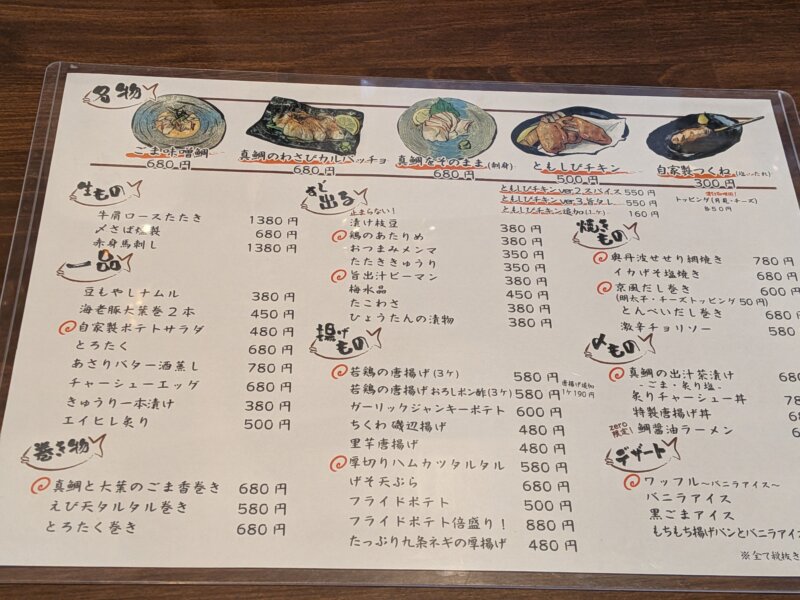 名物
ごま味噌鯛
680円
真鯛のわさびカルパッチョ
680円
真鯛をそのまま(刺身)
680円
ともしびチキン
500円
ともしびチキンver.2 スパイス 550円
ともしびチキンver.3 旨タレ 550円
ともしびチキン追加(1ヶ) 160円
自家製つくね(塩・たれ)
300円
トッピング(月見・チーズ)
各50円
生もの
牛肩ロースたたき 1380円
〆さば燻製 680円
赤身馬刺し 1380円
一品
豆もやしナムル 380円
海老豚大葉巻2本 450円
自家製ポテトサラダ 480円
とろたく 680円
あさりバター酒蒸し 780円
チャーシューエッグ 680円
きゅうり一本漬け 380円
エイヒレ炙り 500円
巻き物
真鯛と大葉のごま香巻き 680円
えび天タルタル巻き 580円
とろたく巻き 680円
すぐ出る
止まらない!
漬け枝豆 380円
鶏のあたりめ 380円
おつまみメンマ 350円
たたききゅうり 350円
旨出汁ピーマン 380円
梅水晶 450円
たこわさ 380円
ひょうたんの漬物 380円
揚げもの
若鶏の唐揚げ(3ヶ) 580円
若鶏の唐揚げおろしポン酢(3ヶ) 580円
唐揚げ追加
1ヶ190円
ガーリックジャンキーポテト 600円
ちくわ磯辺揚げ 480円
里芋唐揚げ 480円
厚切りハムカツタルタル 580円
げそ天ぷら 680円
フライドポテト 500円
フライドポテト倍盛り! 880円
たっぷり九条ネギの厚揚げ 480円
焼きもの
奥丹波せせり網焼き 780円
イカげそ塩焼き 680
京風だし巻き 600円
(明太子・チーズトッピング50円)
とんぺいだし巻き 680
激辛チョリソー 580
〆もの
真鯛の出汁茶漬け 680
-ごま・炙り塩-
炙りチャーシュー丼 78
特製唐揚げ丼 68
zero限定! 鯛醤油ラーメン
デザート
ワッフル〜バニラアイス〜
バニラアイス
黒ごまアイス
もちもち揚げパンとバニラアイス
※全て税抜き